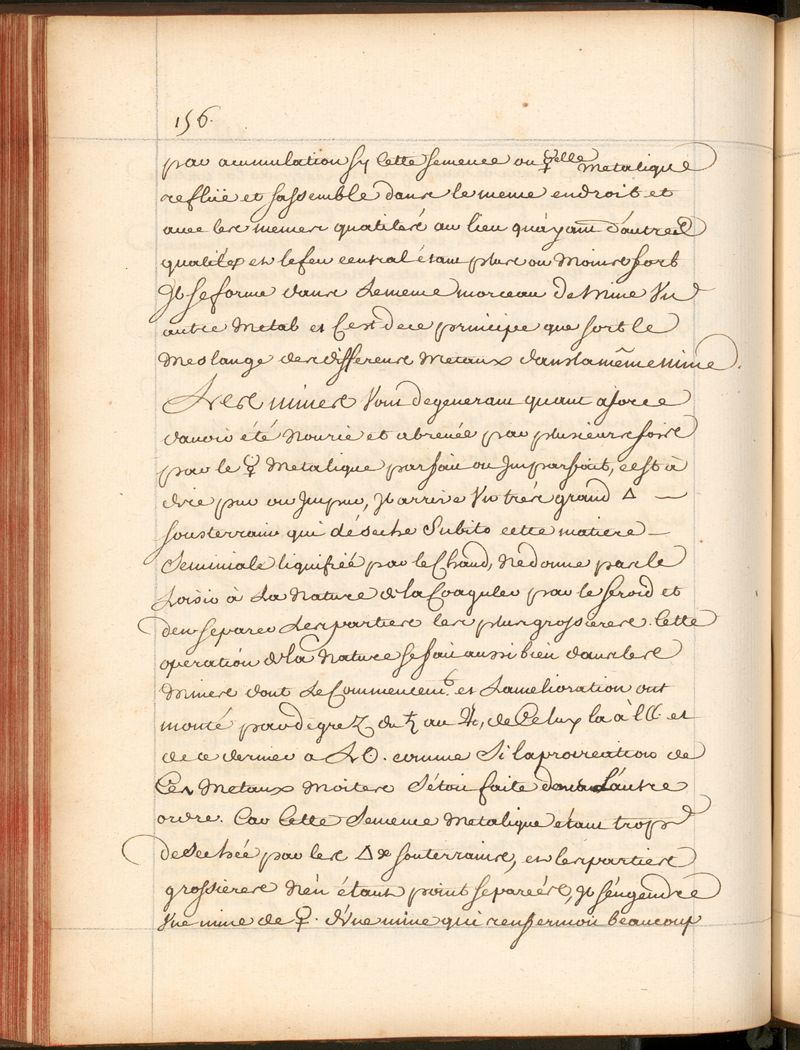 156.
par acumulation sy cette semence ou ☿elle Metalique
reflüe et sassemble dans le meme endroit et
avec les memes qualités au lieu qu'ayant d'autres
qualités et le feu central étant plus ou Moins fort
Jl se forme dans Le meme morceau De Mine Vn
autre Metal et C'est de ce principe que sort le
Meslange des differens Metaux dans la même Mine.
Les mines Vont degenerant quant a force
d'avoir été Nourie et abreuée par plusieurs fois
par le ☿ Metalique parfait ou Jmparfait, c'est à
dire pur ou Jmpur, Jl arrive Vn trés grand △
sousterrain qui déseche Subito cette matiere
Seminiale liquifiée par le Chaud, Ne donne pas le
Loisir à La Nature de la Coaguler par le froid et
d'en separer Les parties les plus grossieres. Cette
operation de la Nature se fait aussi bien dans les
Mines dont Le Commencemt. et L'amelioration ont
monté par degrez du ♄ au ♃, de Celuy la à la ☾ et
de ce dernier a L'☉. comme Si la procreation de
Ces Metaux Moitess S'étoit faite dans L'autre
ordre. Car Cette Semence Metalique étant trop
Desechée par les △x souterrains, et les parties
grossieres N'én étant point separéés, Jl s'engendre
Vne mine de ♀. d'Vne mine qui renfermoit beaucoup